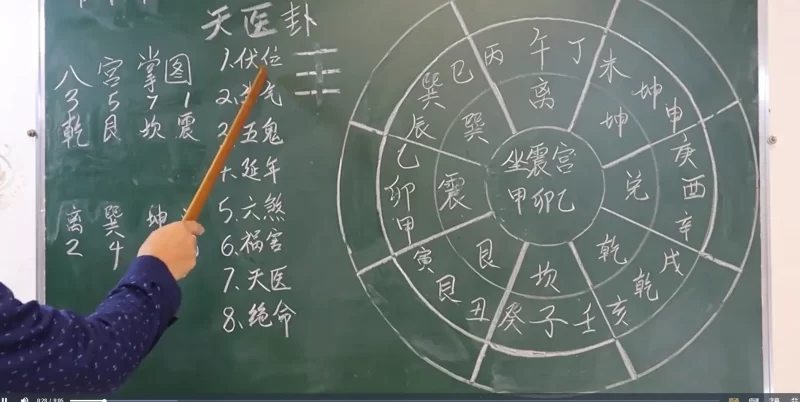 天医卦
八宫掌图
3 5 7 1
乾艮坎震
离巽坤
2 4
1.伏位
2.气
五鬼
延年
5.六煞
6.祸害
7.天医
8.绝命
巽 巳 丙 午 丁 未 坤 申
辰 巽 离 坤 庚
乙 卯 甲 震 兑 酉 辛
坐震宫
甲卯乙
寅 艮 乾 戌
艮 丑 坎 乾 亥
癸 子 壬